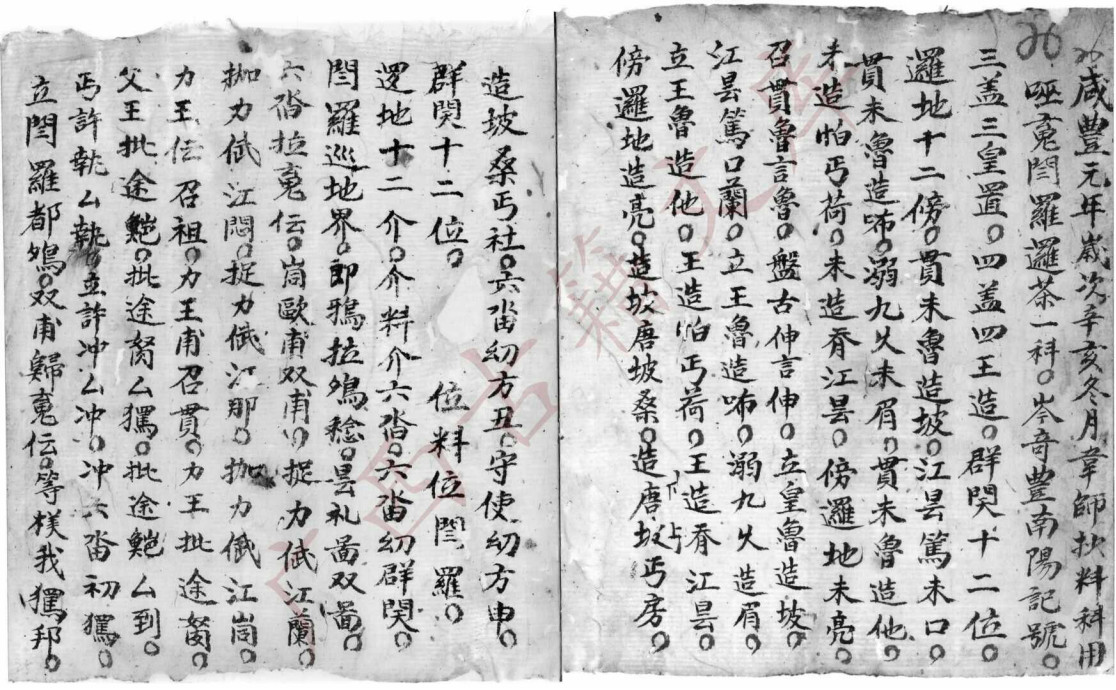 咸豐元年歲次辛亥冬月韋師抄料科用
啞寃閆羅邏茶一科。岑奇豐南陽記號。
三盖三皇置。四盖四王造。群関十二位。
邏地十二傍。貫未魯造坡。江昙篤未口。
貫未魯造咘。溺九乆未眉。貫未魯造他。
未造怕丐荷。未造脊江昙。傍邏地未亮。
召貫魯言魯。盤古伸言伸。立皇魯造坡。
江昙篤口蘭。立王魯造咘。溺九乆造眉。
立王魯造他。王造怕丐荷。王造脊江昙。
傍邏地造亮。造坡唐坡桑。造唐坡丐房。
造坡桑丐社。六畓幼方丑。守使幼方申。
群関十二位。位料位閆羅。
邏地十二介。介料介六畓。六畓幼群関。
閆羅巡地界。即鴉拉鳩稔。昙礼啚双啚。
六畓拉寃伝。峝歐甫双甫。捉力𠇾江蘭。
拁力𠇾江悶。捉力𠇾江那。拁力𠇾江峝。
力王伝召祖。力王甫召貫。力王批途芻。
父王批途魽。批途芻厶獁。批途魽厶到。
丐許執厶執。立許冲厶冲。冲六畓初獁。
立閆羅都鳩。双甫歸寃伝。等様我獁邦。